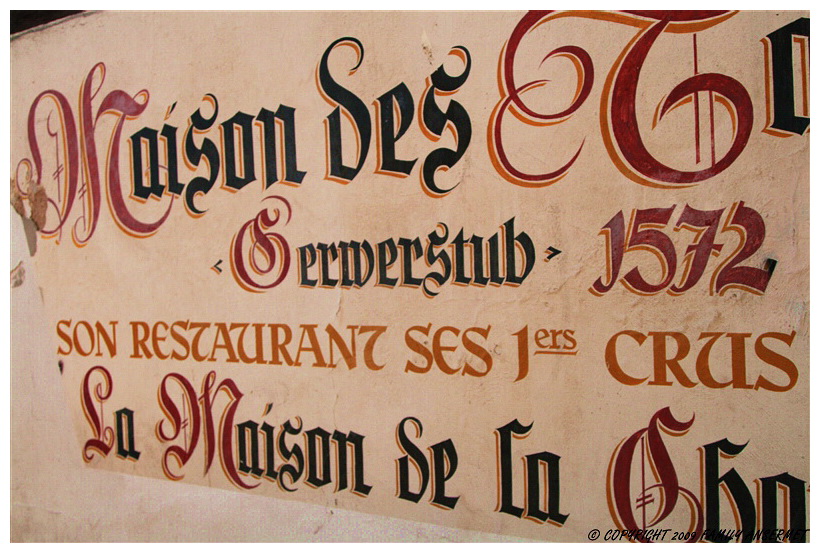 Maison des Ta
< Gerwerstub > 1572
SON RESTAURANT SES 1ers CRUS
La Maison de la Cha
© COPYRIGHT 2009 FAMILY